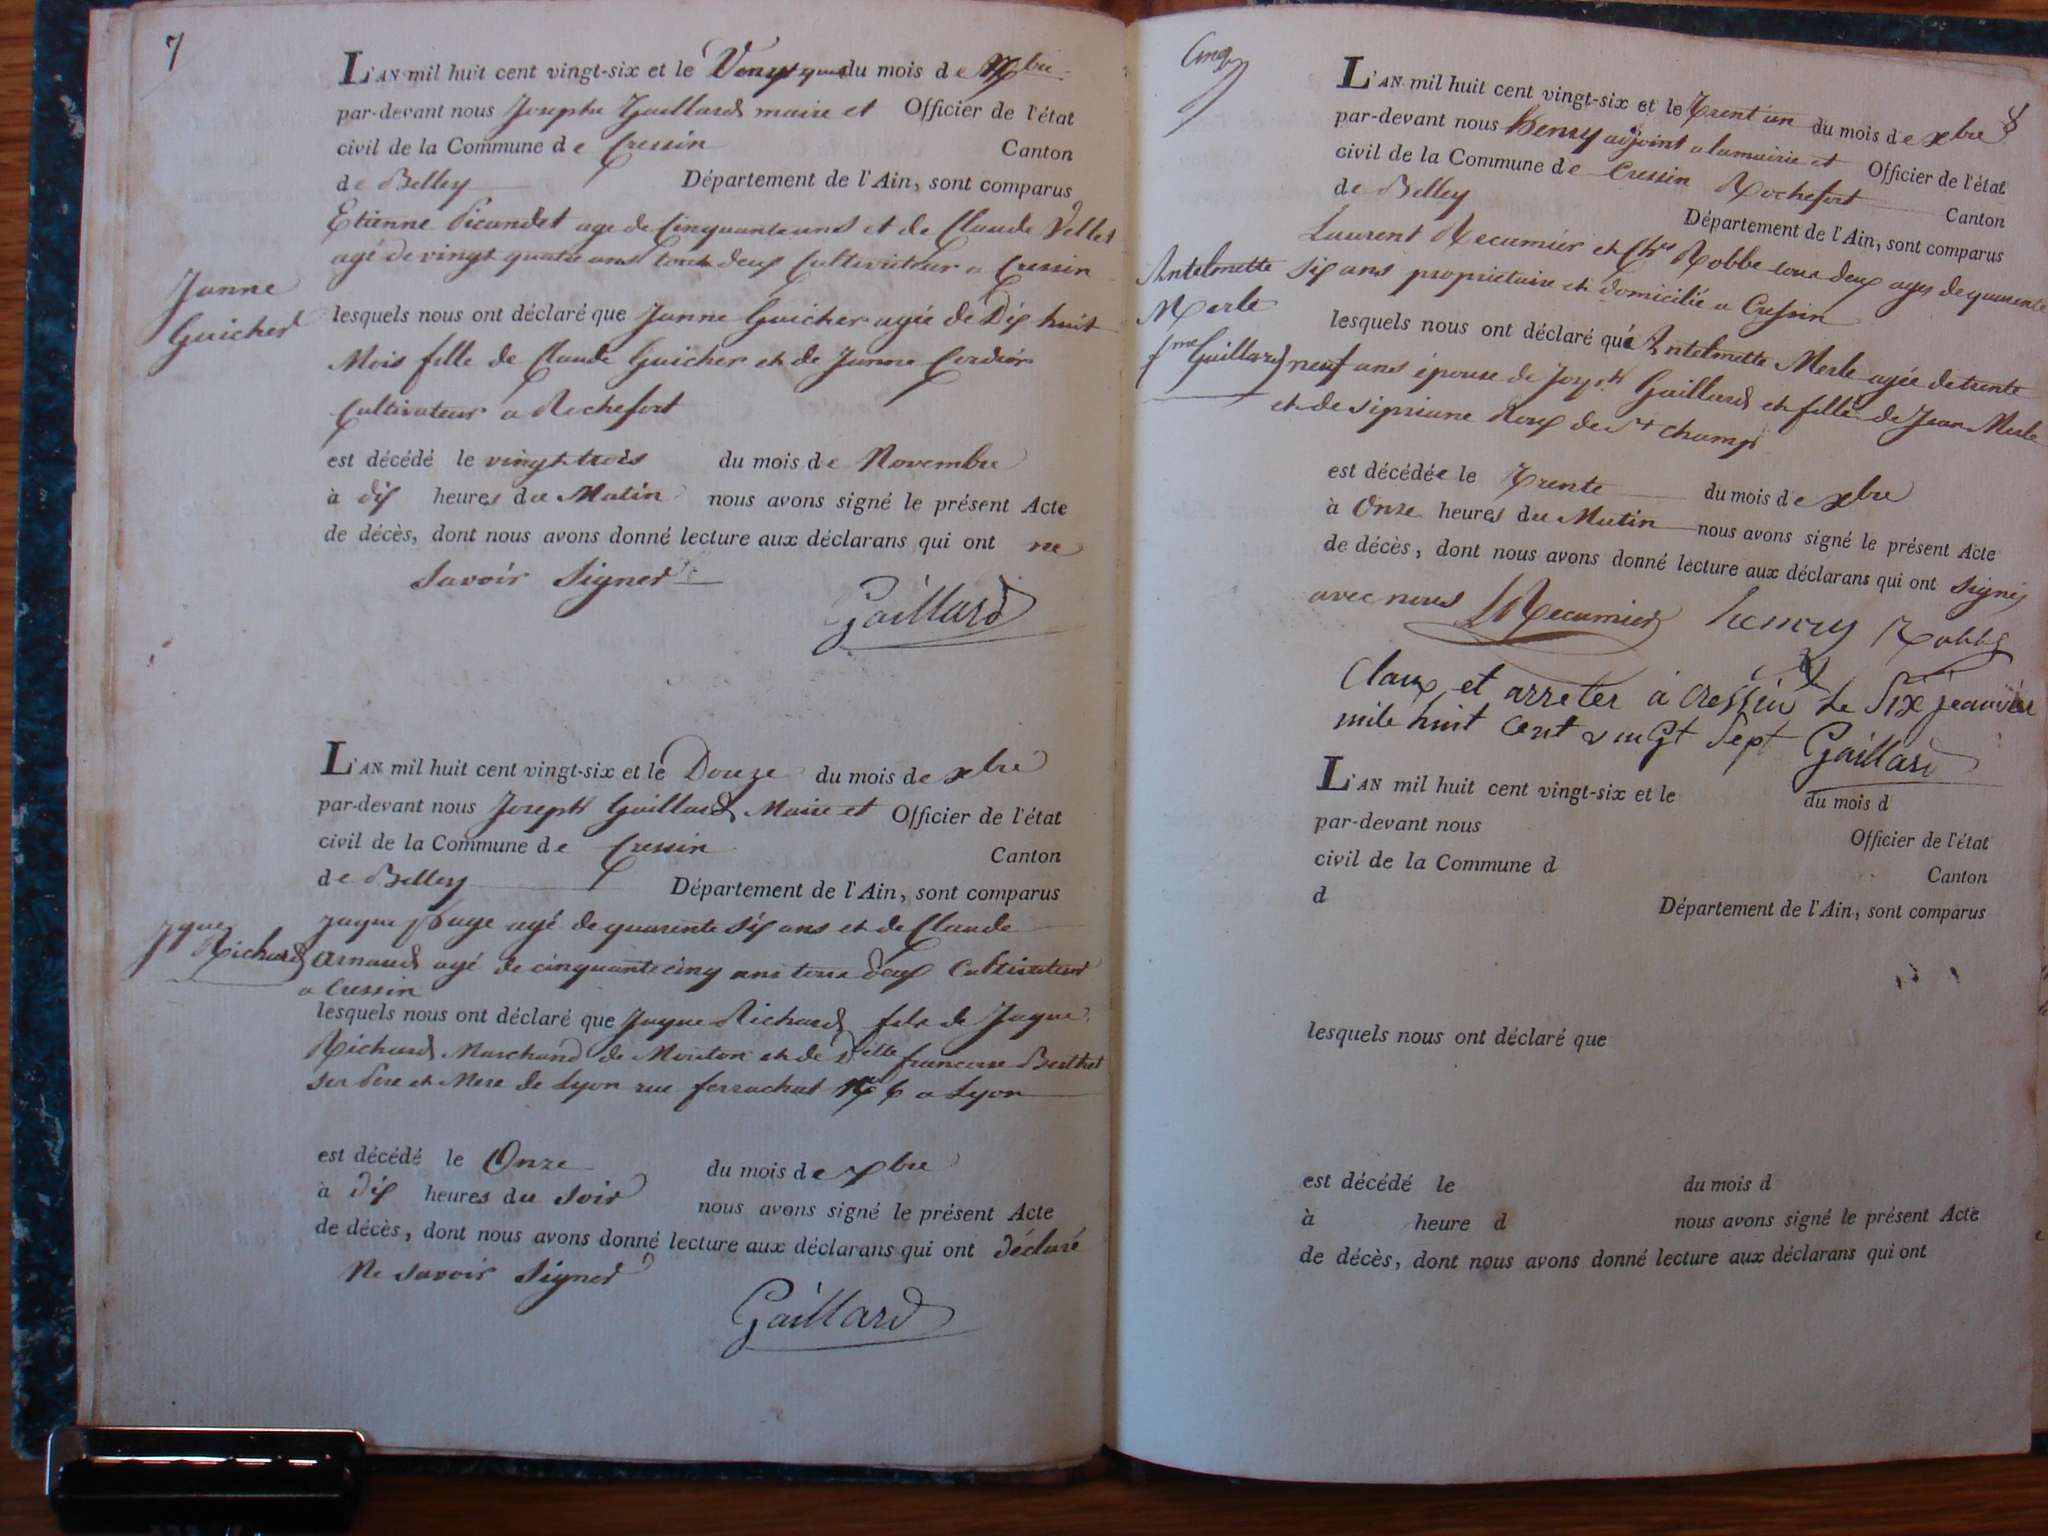 7
L'AN mil huit cent vingt-six et le Vingt quatre du mois de 9bre
par-devant nous Josephe Gaillard maire et Officier de l'état
civil de la Commune de Cressin Canton
de Belley Département de l'Ain, sont comparus
Etienne Picandet age de Cinquante ans et de Claude Vellet
agé de vingt quatre ans tout deux Cultivateur a Cressin
Janne
Guicher
lesquels nous ont déclaré que Janne Guicher agée de Dix huit
Mois fille de Claude Guicher et de Janne Cordier
Cultivateur a Rochefort
est décédé le vingt trois du mois de Novembre
à dix heures du Matin nous avons signé le présent Acte
de décès, dont nous avons donné lecture aux déclarans qui ont ne
savoir Signer
Gaillard
L'AN mil huit cent vingt-six et le Douze du mois de xbre
par-devant nous Joseph Gaillard Maire et Officier de l'état
civil de la Commune de Cressin Canton
de Belley Département de l'Ain, sont comparus
Jque
Richard
Jaque Page agé de quarente six ans et de Claude
Arnaud agé de cinquante cinq ans tous deux Cultivateur
a Cressin
lesquels nous ont déclaré que Jaque Richard fils de Jaque
Richard Marchand de Mouton et de Delle francoise Berthet
Ses Pere et Mere de Lyon rue ferrachat No 6 a Lyon
est décédé le Onze du mois de xbre
à dix heures du Soir nous avons signé le présent Acte
de décès, dont nous avons donné lecture aux déclarans qui ont déclaré
Ne savoir Signer
Gaillard
Cinq
8
L'AN mil huit cent vingt-six et le Trent'un du mois de xbre
par-devant nous henry adjoint a la mairie et Officier de l'état
civil de la Commune de Cressin Rochefort Canton
de Belley Département de l'Ain, sont comparus
Laurent Recamier et Chs Robbe tous deux ages de quarente
six ans propriétaire et domicilié a Cressin
Antelmette
Merle
fme Gaillard
lesquels nous ont déclaré que Antelmette Merle agée de trente
neuf ans épouse de Joseph Gaillard et fille de Jean Merle
et de sipriane Roux de St champ
est décédée le Trente du mois de xbre
à Onze heures du Matin nous avons signé le présent Acte
de décès, dont nous avons donné lecture aux déclarans qui ont signés
avec nous LRecamier henry Robbe
Claux et arreter à Cressin Le Six jeanvier
mile huit cent vingt Sept Gaillard
L'AN mil huit cent vingt-six et le du mois d
par-devant nous Officier de l'état
civil de la Commune d Canton
d Département de l'Ain, sont comparus
lesquels nous ont déclaré que
est décédé le du mois d
à heure d nous avons signé le présent Acte
de décès, dont nous avons donné lecture aux déclarans qui ont